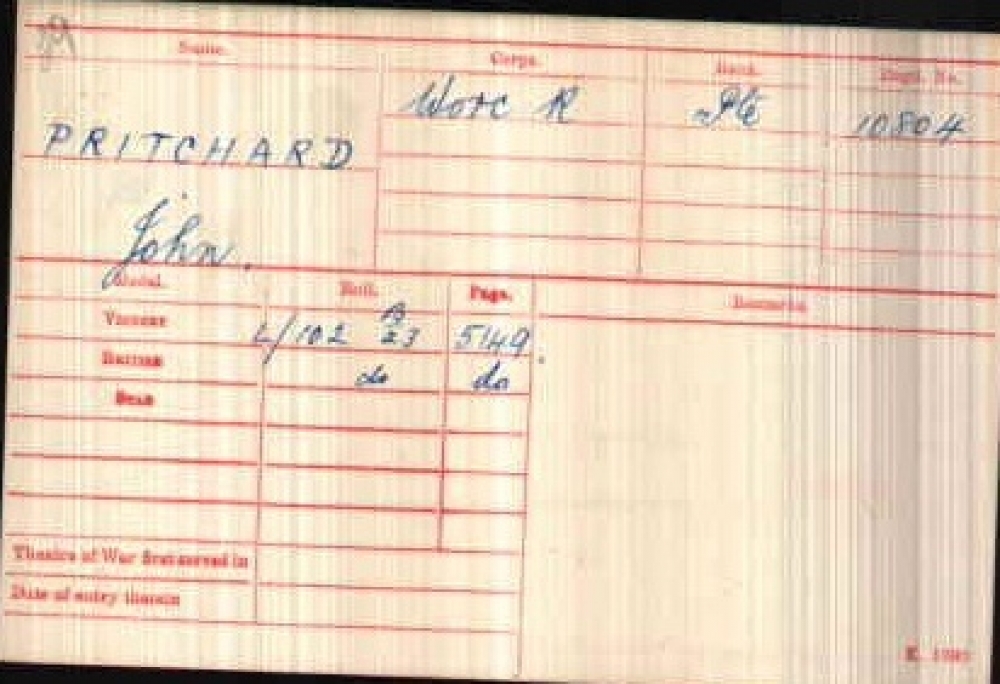 Name. Corps. Rank. Regtl. No.
Worc R Pte 10804
PRITCHARD
John.
Medal. Roll. Page. Remarks
Victory L/102 B23 5149.
British do do
Star
Theatre of War first served in
Date of entry therein
K. 1380